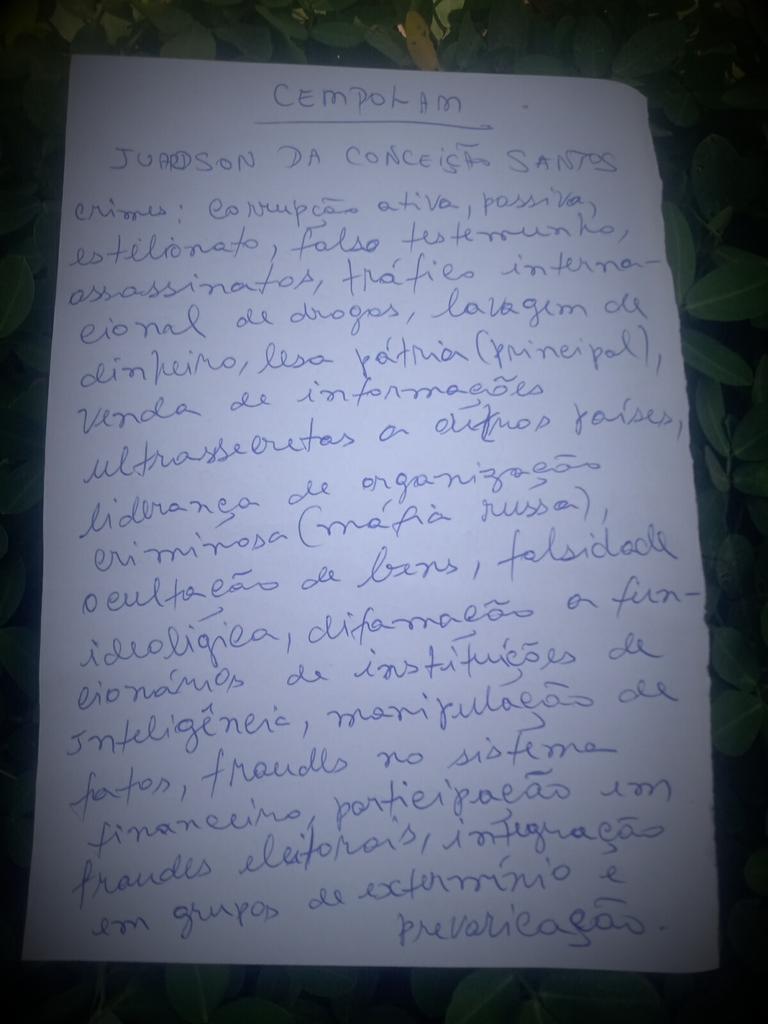 CEMPOLAM
JUARDSON DA CONCEIÇÃO SANTOS
crimes: corrupção ativa, passiva,
estelionato, falso testemunho,
assassinatos, tráfico interna-
cional de drogas, lavagem de
dinheiro, lesa pátria (principal),
venda de informações
ultrassecretas a outros países,
liderança de organização
criminosa (máfia russa),
ocultação de bens, falsidade
ideológica, difamação a fun-
cionários de instituições de
Inteligência, manipulação de
fatos, fraudes no sistema
financeiro, participação em
fraudes eleitorais, integração
em grupos de extermínio e
prevaricação.